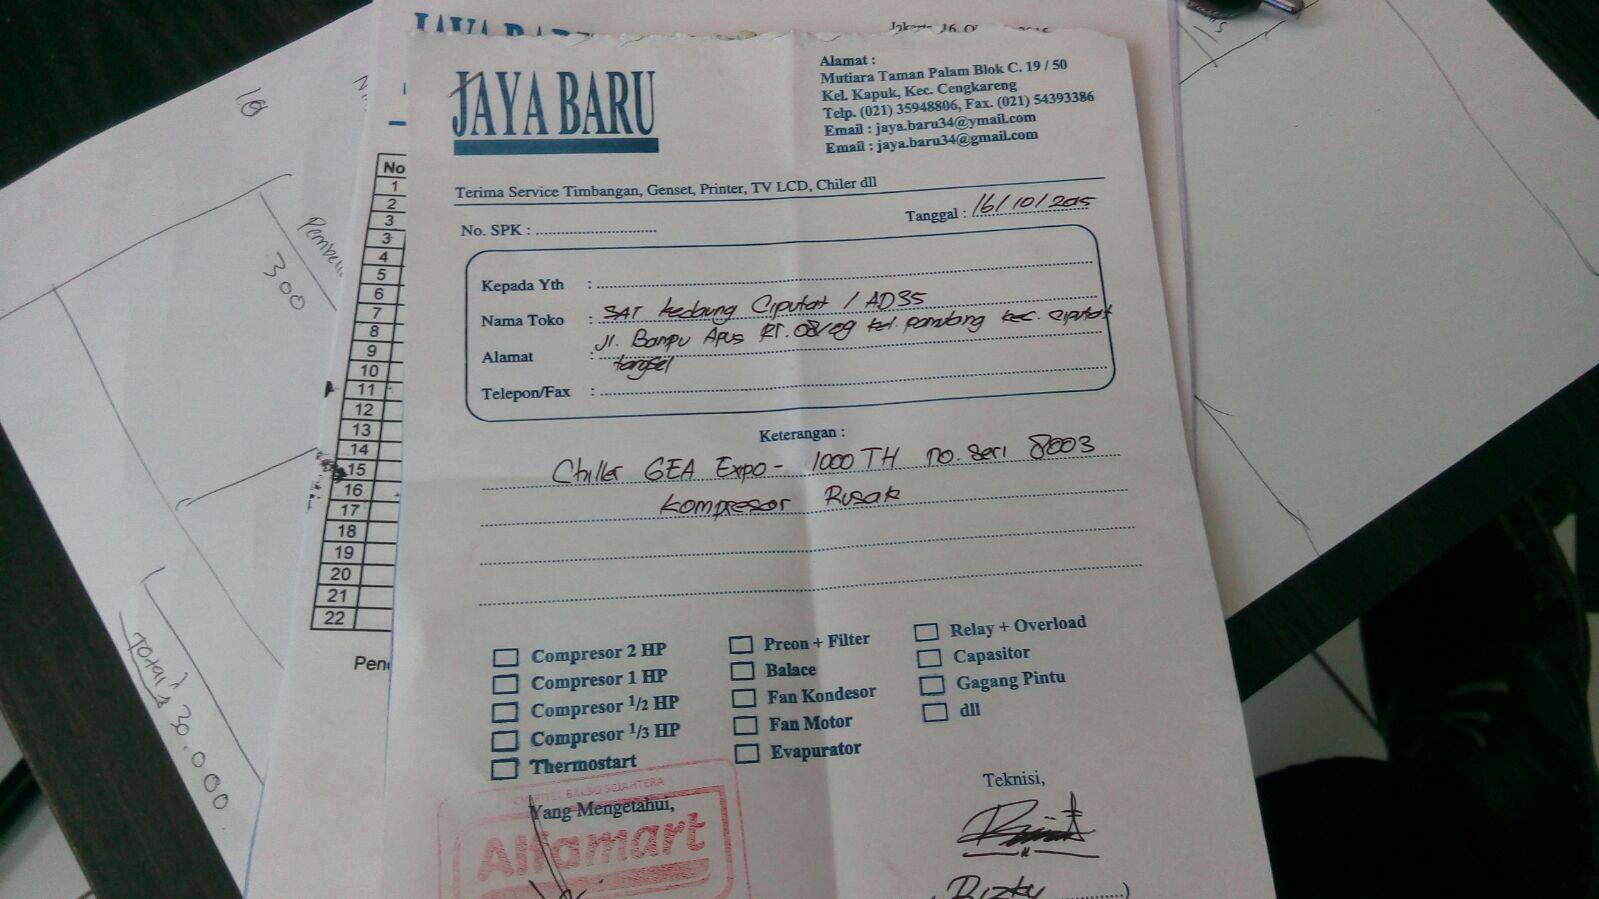 JAYA BARU
JAYA BARU
Alamat :
Mutiara Taman Palam Blok C. 19 / 50
Kel. Kapuk, Kec. Cengkareng
Telp. (021) 35948806, Fax. (021) 54393386
Email : jaya.baru34@ymail.com
Email : jaya.baru34@gmail.com
Terima Service Timbangan, Genset, Printer, TV LCD, Chiler dll
No. SPK :
Tanggal : 16/10/2015
Kepada Yth :
Nama Toko : SAT Kedaung Ciputat / AD35
Alamat : Jl. Bampu Apus RT. 08/09 kel. pamulang kec. ciputat
tangsel
Telepon/Fax :
Keterangan :
Chiller GEA Expo - 1000 TH no. seri 8003
kompresor Rusak
Compresor 2 HP
Compresor 1 HP
Compresor 1/2 HP
Compresor 1/3 HP
Thermostart
Preon + Filter
Balace
Fan Kondesor
Fan Motor
Evapurator
Relay + Overload
Capasitor
Gagang Pintu
dll
Yang Mengetahui,
Alfamart
Teknisi,
Rizky
No
1
2
3
3
4
5
6
7
8
9
10
11
12
13
14
15
16
17
18
19
20
21
22
300
Total 30.000